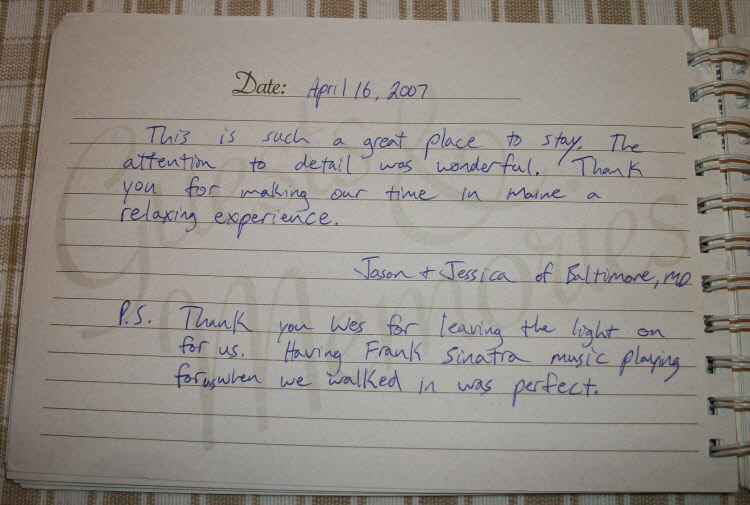 Date: April 16, 2007
Guests &
Memories
This is such a great place to stay. The
attention to detail was wonderful. Thank
you for making our time in Maine a
relaxing experience.
Jason + Jessica of Baltimore, MD
P.S. Thank you Wes for leaving the light on
for us. Having Frank Sinatra music playing
for us when we walked in was perfect.